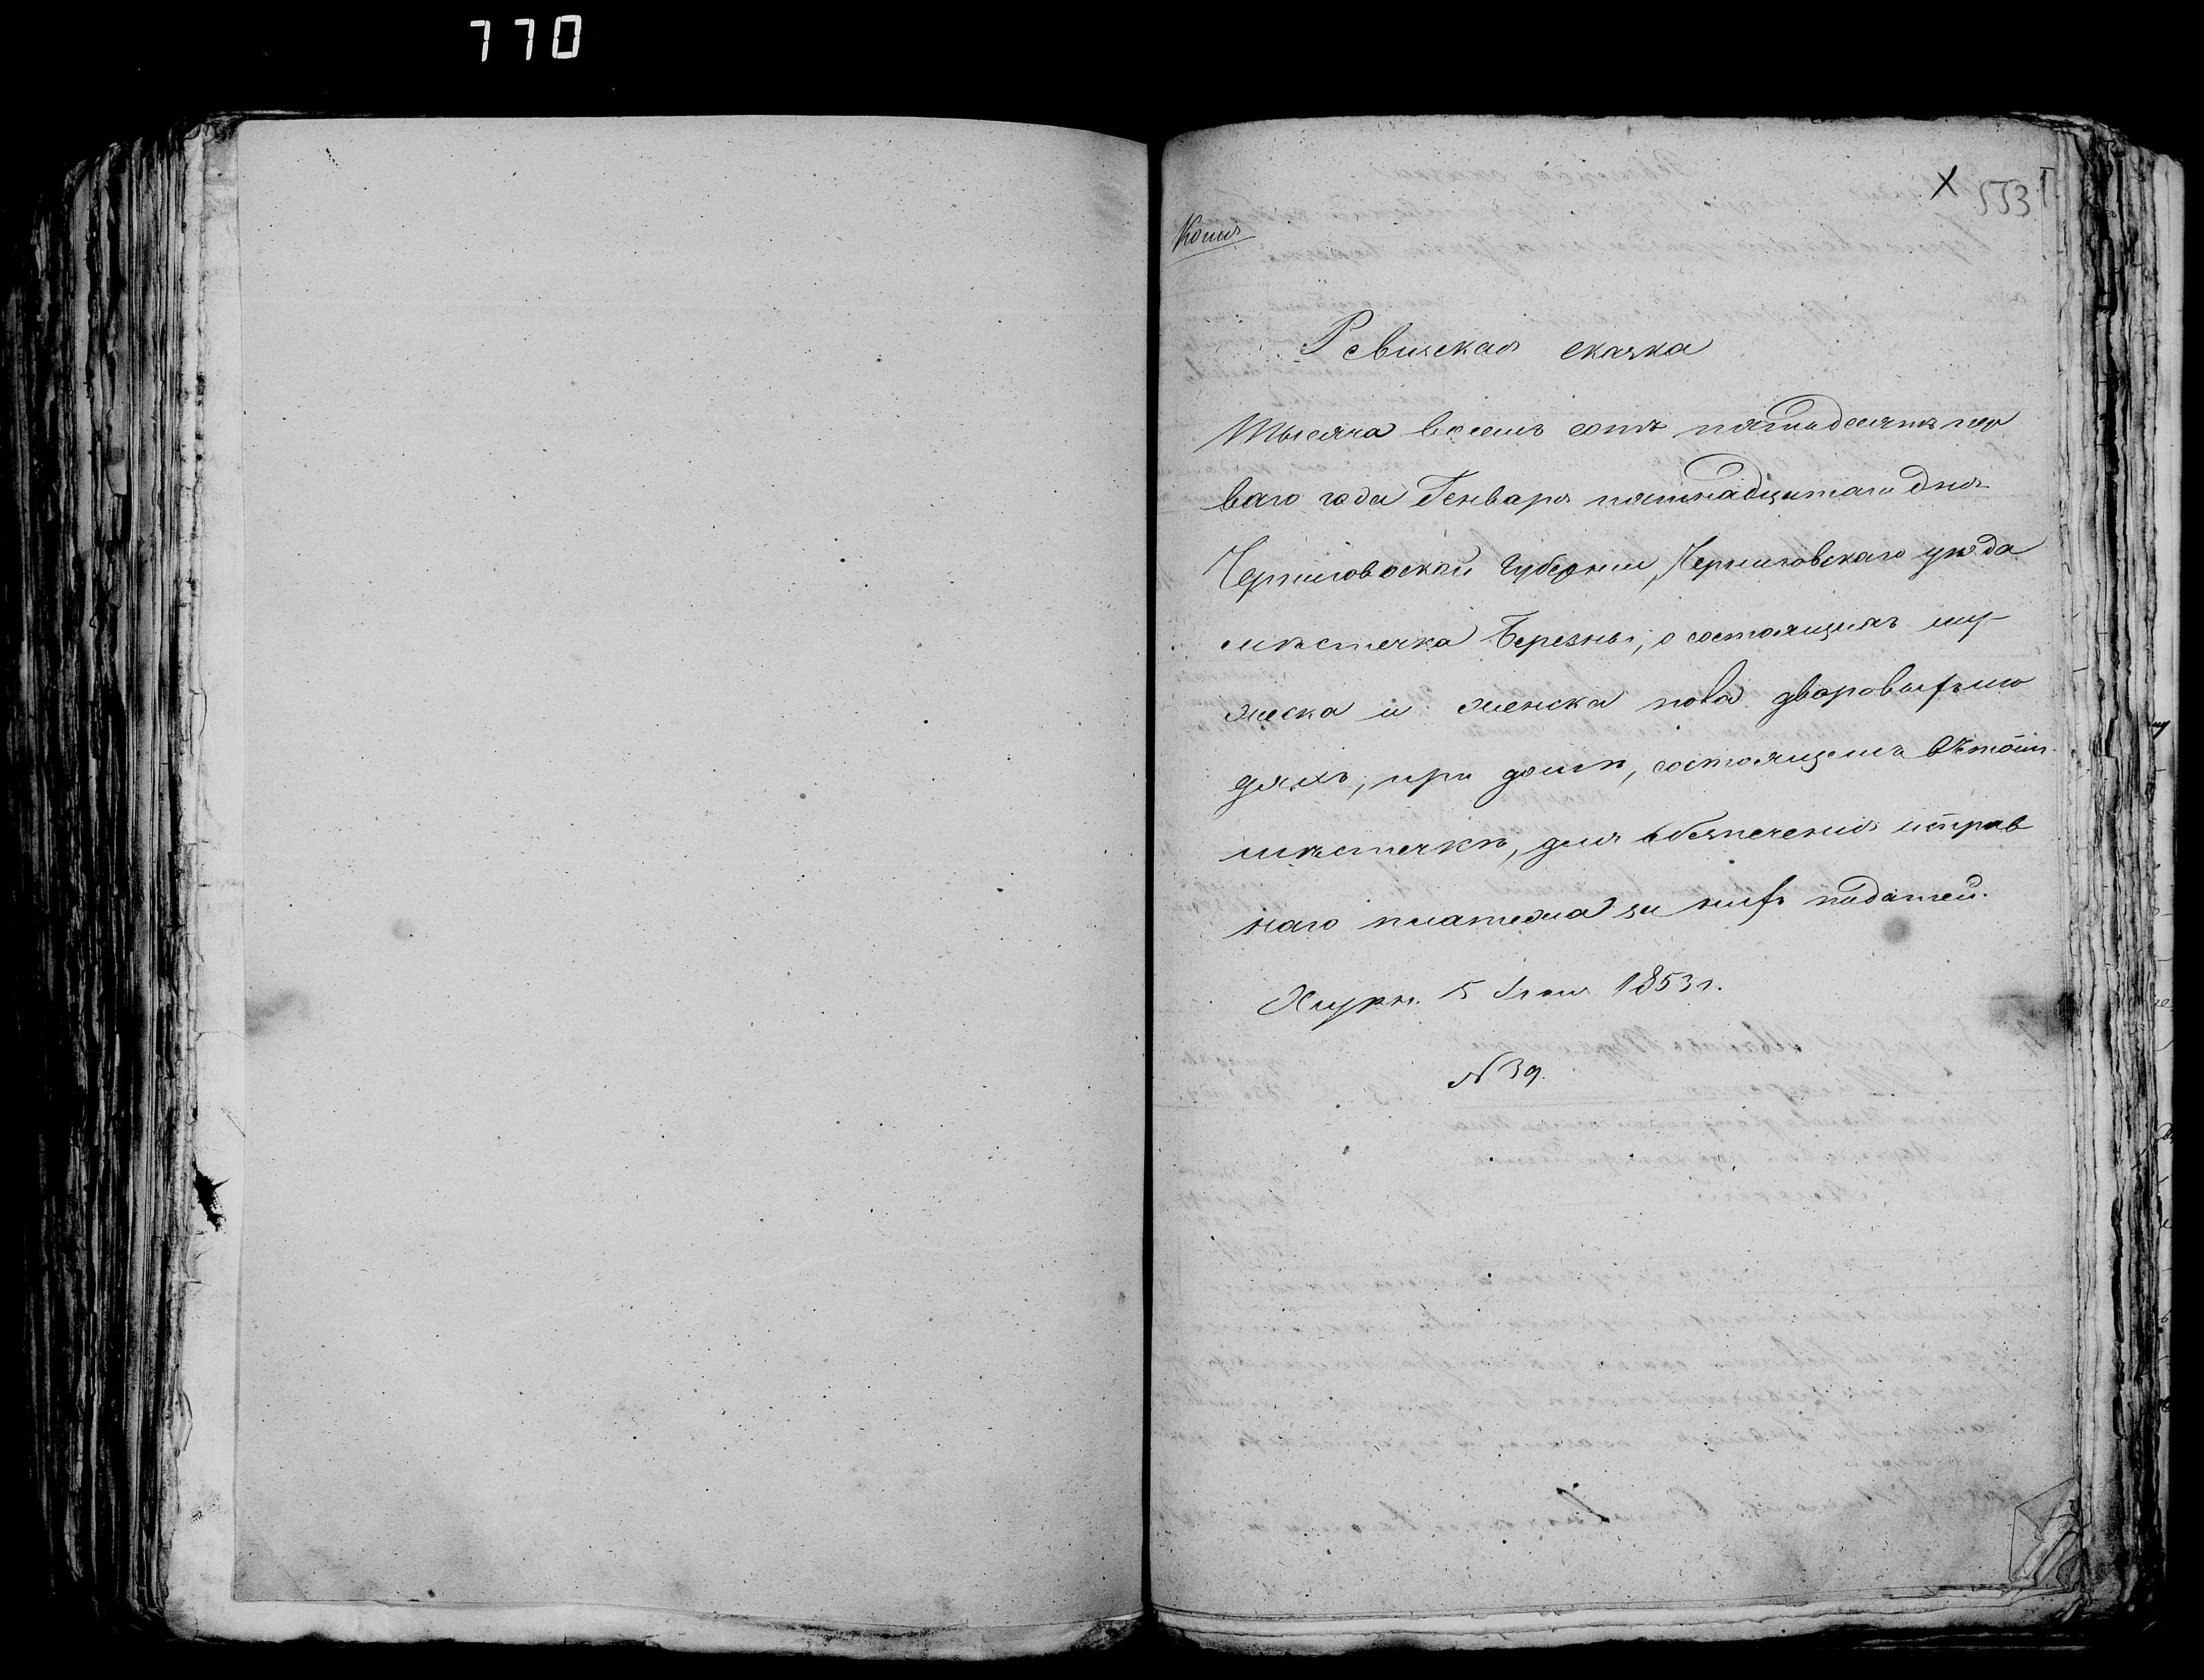 770
X 553
Копія
Ревизская сказка
Тысяча восемь сотъ пятьдесятъ пер
ваго года Генваря пятнадцатаго дня
Черниговской Губерніи, Черниговскаго уѣзда
мѣстечка Березны, о состоящихъ му-
жеска и женска пола дворовыхъ лю
дяхъ, при домѣ, состоящемъ въ томъ
мѣстечкѣ, для обезпеченія исправ
наго платежа за нихъ податей.
5 1853 г.
N 39.